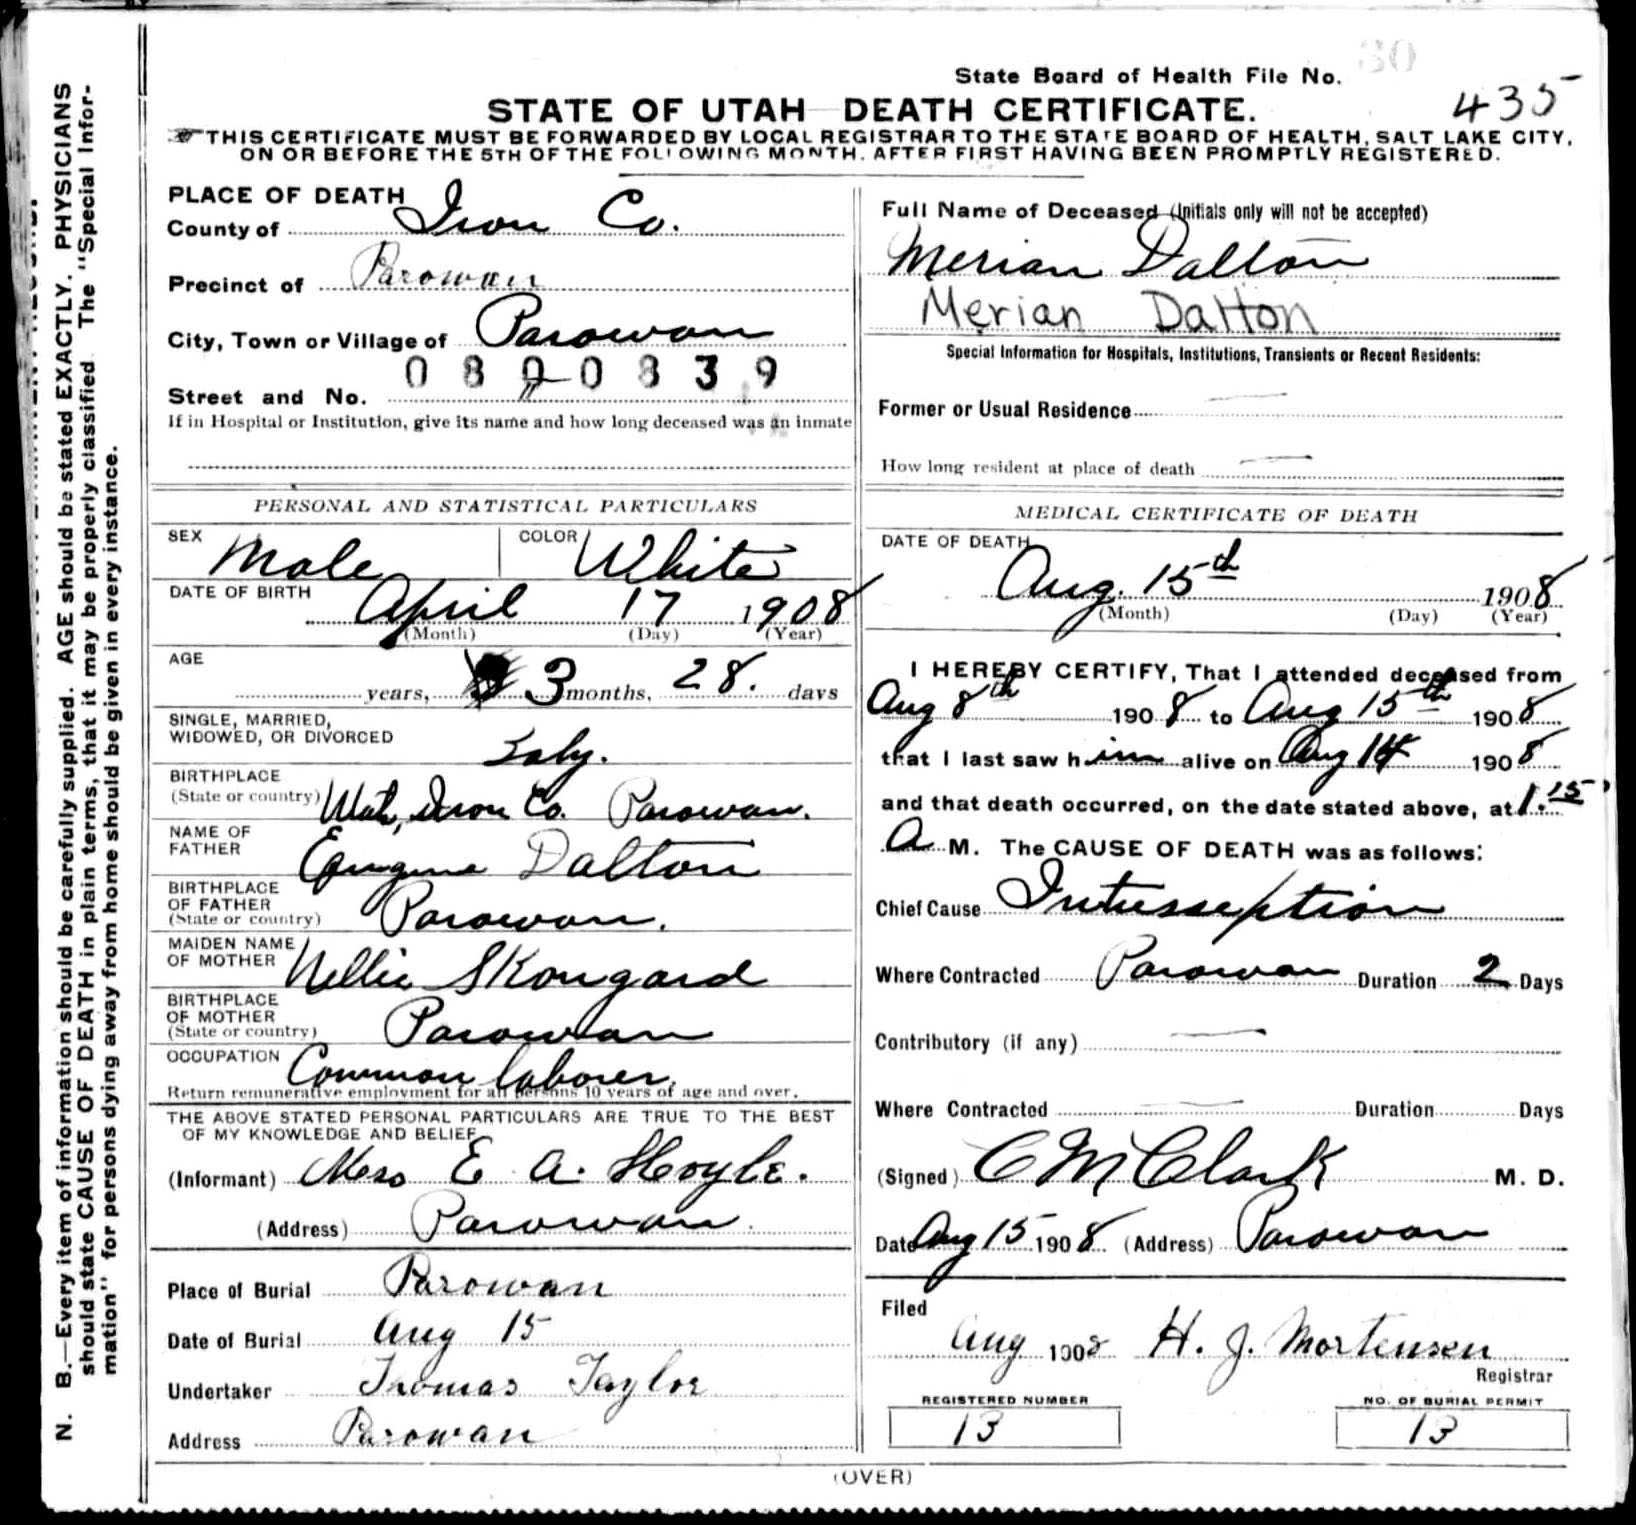 State Board of Health File No. 80
435
STATE OF UTAH DEATH CERTIFICATE.
THIS CERTIFICATE MUST BE FORWARDED BY LOCAL REGISTRAR TO THE STATE BOARD OF HEALTH, SALT LAKE CITY,
ON OR BEFORE THE 5TH OF THE FOLLOWING MONTH, AFTER FIRST HAVING BEEN PROMPTLY REGISTERED.
PLACE OF DEATH
County of Iron Co.
Precinct of Parowan
City, Town or Village of Parowan
0800839
Street and No. "
If in Hospital or Institution, give its name and how long deceased was an inmate
Full Name of Deceased (Initials only will not be accepted)
Merian Dalton
Merian Dalton
Special Information for Hospitals, Institutions, Transients or Recent Residents:
Former or Usual Residence
How long resident at place of death
PERSONAL AND STATISTICAL PARTICULARS
SEX Male COLOR White
DATE OF BIRTH
April 17 1908
(Month) (Day) (Year)
AGE
years, 3 months, 28. days
SINGLE, MARRIED,
WIDOWED, OR DIVORCED
BIRTHPLACE
(State or country) Utah, Iron Co. Parowan.
NAME OF
FATHER Eugene Dalton
BIRTHPLACE
OF FATHER
(State or country) Parowan.
MAIDEN NAME
OF MOTHER Nellie Skougard
BIRTHPLACE
OF MOTHER
(State or country) Parowan
OCCUPATION Common laborer.
Return remunerative employment for all persons 10 years of age and over.
THE ABOVE STATED PERSONAL PARTICULARS ARE TRUE TO THE BEST
OF MY KNOWLEDGE AND BELIEF
(Informant) Mrs E A. Hoyle.
(Address) Parowan.
Place of Burial Parowan
Date of Burial Aug 15
Undertaker Thomas Taylor
Address Parowan
MEDICAL CERTIFICATE OF DEATH
DATE OF DEATH
Aug. 15th 1908
(Month) (Day) (Year)
I HEREBY CERTIFY, That I attended deceased from
Aug 8th 1908 to Aug 15th 1908
that I last saw him alive on Aug 14 1908
and that death occurred, on the date stated above, at 1.15
A M. The CAUSE OF DEATH was as follows:
Chief Cause Intusseption
Where Contracted Parowan Duration 2 Days
Contributory (if any)
Where Contracted Duration Days
(Signed) C M Clark M. D.
Date Aug 15 1908 (Address) Parowan
Filed
Aug 1908 H. J. Mortensen
Registrar
REGISTERED NUMBER
13
NO. OF BURIAL PERMIT
13
(OVER)
N. B.—Every item of information should be carefully supplied. AGE should be stated EXACTLY. PHYSICIANS
should state CAUSE OF DEATH in plain terms, that it may be properly classified. The "Special Infor-
mation" for persons dying away from home should be given in every instance.